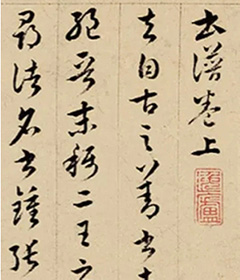 書譜卷上
夫自古之善書者
絕晉末稱二王之
尋諸名書鍾張